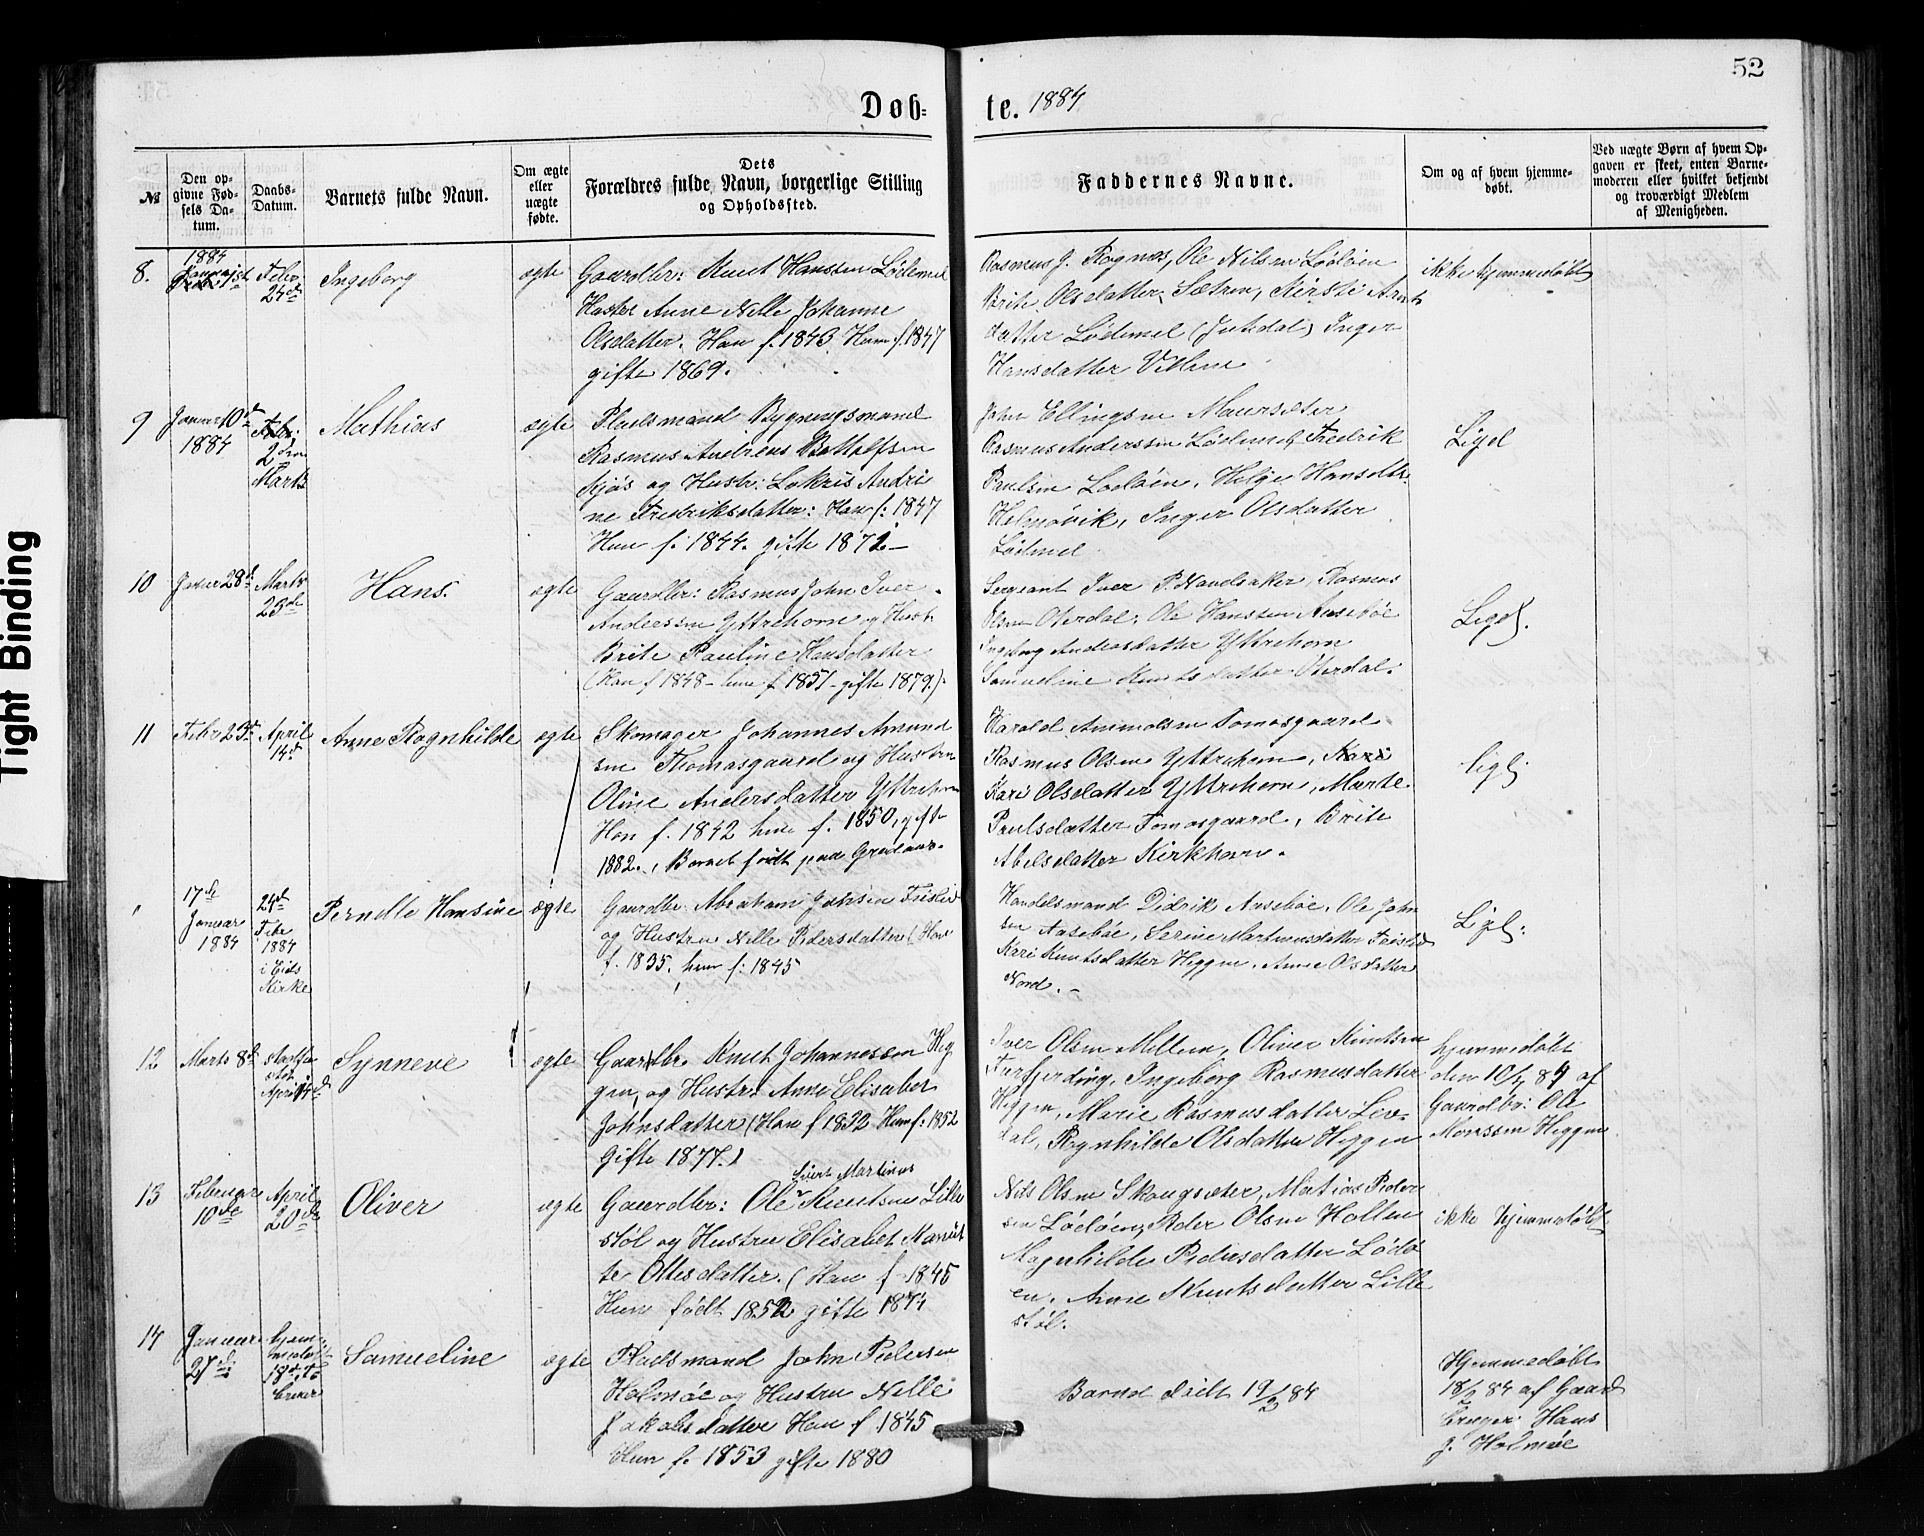 52
Døb= te. 1884
№
Den op-
givne Fød-
sels Da-
tum.
Daabs-
Datum.
Barnets fulde Navn.
Om ægte
eller
uægte
fødte.
Dets
Forældres fulde Navn, borgerlige Stilling
og Opholdssted.
Faddernes Navne.
Om og af hvem hjemme-
døbt.
Ved uægte Børn af hvem Op-
gaven er skeet, enten Barne-
moderen eller hvilket bekjendt
og troværdigt Medlem
af Menigheden.
8.
1884
1st
Febr
24de
Ingeborg
ægte
Gaardbr: Knut Hanssen Lødemel
Anne Nille Johanne
Olsdatter. Han f. 1843 Hun f. 1847
gifte 1869.
Rasmus J. Rognøs, Ole Nilsen Lødøen
Brite Olsdatter Sætren, Kirsti Arnts
datter Lødemel (Jutdal) Inger
Hansdatter
ikke hjemmedøbt
9
Januar 10de
1884
Febr:
2den
Marts
Mathias
ægte
Pladsmand Bygningsmand
Rasmus Andreas Bottolfsen
og Hustr: Lokris Andri
ne Fredriksdatter: Han f: 1847
Hun f. 1844. gifte 1872 –
John Ellingsen Maursæter
Rasmus Anderssen Lødemel, Fredrik
Paulsen Lødøen, Helge Hansdtr.
Holmøvik, Inger Olsdatter
Lødemel
Ligel
10
Januar 28de
Marts
23de
Hans.
ægte
Gaardbr: Rasmus John Iver
Anderssen Yttrehorn og Hustr.
Brite Pauline Hansdatter
(Han f 1848 – hun f 1851 – gifte 1879.)
Sergeant Iver P. Navelsaker, Rasmus
Olsen Oterdal, Ole Hanssen Aasebøe
Ingeborg Andersdatter Yttrehorn
Samueline Knutsdatter Oterdal.
Ligel.
11
Febr 23de
April
14de
Anne Ragnhilde
ægte
Skomager Johannes Amund
sen Thomasgaard og Hustru
Oline Andersdatter Yttrehorn
Han f. 1842 hun f. 1850, gifte
1882., Barnet født paa
Harald Amundsen Tomasgaard
Rasmus Olsen Yttrehorn, Kari
Kari Olsdatter Yttrehorn, Marte
Paulsdatter Tomasgaard, Brite
Abelsdatter Kirkhorn.
ligl.
17de
Januar
1884
24de
Febr
1884
i Eids
Kirke
Pernelle Hansine
ægte
Gaardbr. Abraham Johnsen Fristid
og Hustru Nille Pedersdatter (Han
f. 1835. hun f: 1845
Handelsmand Didrik Aasebøe, Ole John
sen Aasebøe, Serine Martinusdatter Fristid
Kari Knutsdatter Heggen, Anne Olsdatter
Nord. –
Ligl.
12
Marts 8de
stadfæ
stet
April 14de
Synneve
ægte
Gaardbr. Knut Johannessen Heg
gen, og Hustr: Anne Elisabet
Johnsdatter (Han f 1832 Hun f: 1852
Gifte 1877.)
Iver Olsen Mellem, Oliver Knutsen
Ingeborg Rasmusdatter
Heggen, Marie Rasmusdatter Leve
dal, Ragnhilde Olsdatter Heggen
hjemmedøbt
den 10/3 84 af
Gaardbr: Ole
Monssen Heggen
13
Februar
10de
April
20de
Oliver
ægte
Sivert Martinus
Gaardbr: Ole Knutsen Lille
støl og Hustru Elisabet Marit
te Ottesdatter. (Han f 1845
Hun født 1852 gifte 1874
Nils Olsen Skougsæter, Matias Peder
sen Lødøen, Peder Olsen Hollen
Magnhilde Pedersdatter Lødø
en. Anne Knutsdatter Lille
støl.
ikke hjemmedøbt
14
Januar
27de
hjem
medøbt
18de
Samueline
ægte
Pladsmand John Pedersen
Holmøe og Hustru Nille
Jakobsdatter Han f. 1845
Hun f. 1853 gifte 1880
Barnet dødt 19/2 84
Hjemmedøbt
18/2 84 af Gaard
bruger Hans
J. Holmøe
Tight Binding